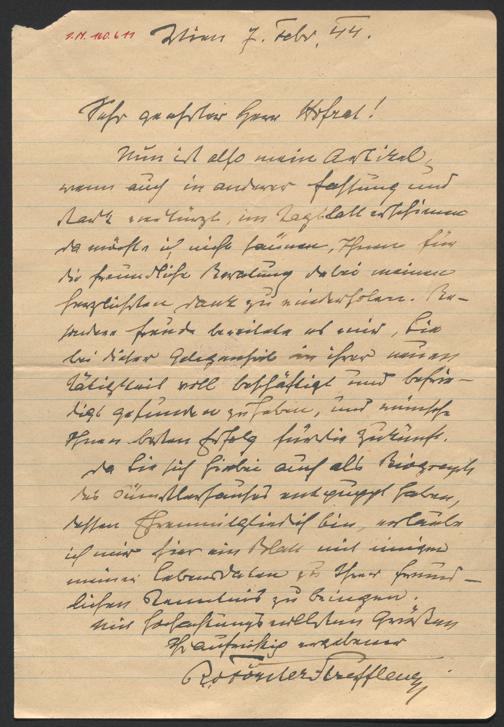 I.N. 160.611
Wien 7. Febr. 44.
Sehr geehrter Herr Hofrat!
Nun ist also mein Artikel,
wenn auch in anderer Fassung und
stark verkürzt, im Tagblatt erschienen
da möchte ich nicht säumen, Ihnen für
die freundliche Beratung dabei meinen
herzlichsten Dank zu wiederholen. Be-
sondere Freude bereitete es mir, Sie
bei dieser Gelegenheit in ihrer neuen
Tätigkeit voll beschäftigt und befrie-
digt gefunden zu haben, und wünsche
Ihnen besten Erfolg für die Zukunft.
Da Sie sich hiebei auch als Biograph
des Künstlerhauses entpuppt haben,
dessen Ehrenmitglied ich bin, erlaube
ich mir hier ein Blatt mit einigen
meiner Lebensdaten zu Ihrer freund-
lichen Kenntnis zu bringen.
Mit hochachtungsvollsten Grüßen
Ihr aufrichtig ergebener
Förster-Streffleur